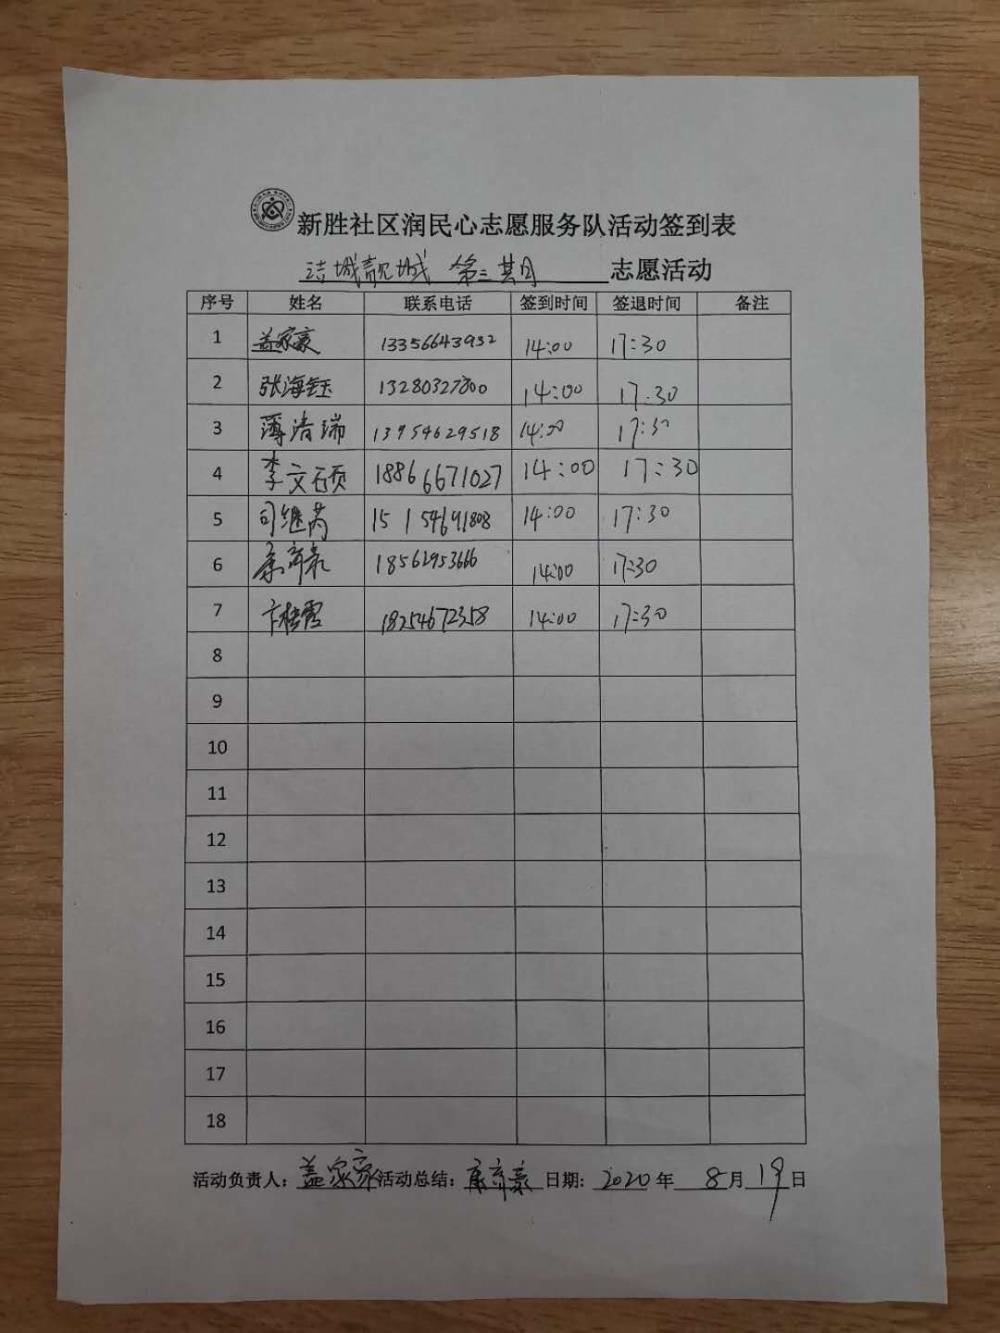 新胜社区润民心志愿服务队活动签到表
洁城靓城 第三期 志愿活动
序号 姓名 联系电话 签到时间 签退时间 备注
1 盖家豪 13356643932 14:00 17:30
2 张海钰 13280327800 14:00 17:30
3 薄清瑞 13954629518 14:00 17:30
4 李文硕 18866671027 14:00 17:30
5 司继芮 15154691808 14:00 17:30
6 18562953666 14:00 17:30
7 卞桂霞 18254672358 14:00 17:30
8
9
10
11
12
13
14
15
16
17
18
活动负责人: 盖家豪 活动总结: 日期: 2020 年 8 月 19 日